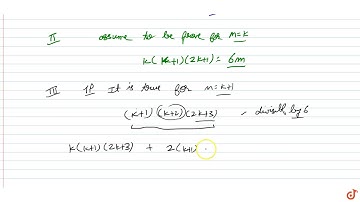 II assume to be prove for m=k
k(k+1)(2k+1) = 6m
III If It is true for m=k+1
(k+1)(k+2)(2k+3) divisible by 6
k(k+1)(2k+3) + 2(k+1)